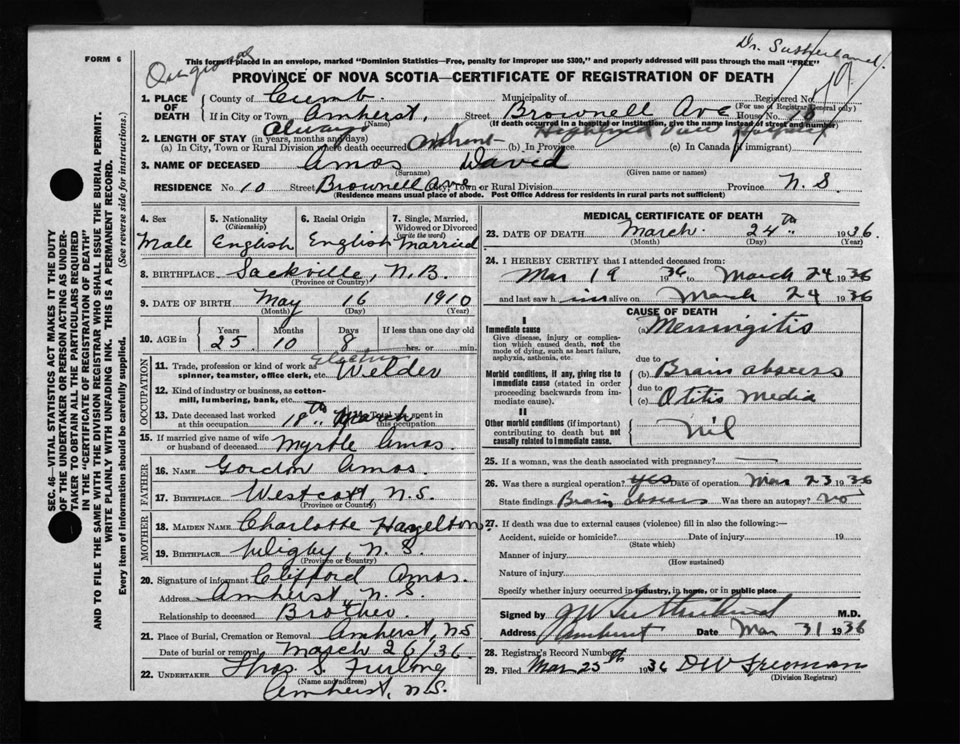 FORM 6
Dr. Sutherland.
This form if placed in an envelope, marked "Dominion Statistics—Free, penalty for improper use $300," and properly addressed will pass through the mail "FREE"
PROVINCE OF NOVA SCOTIA—CERTIFICATE OF REGISTRATION OF DEATH
1. PLACE OF DEATH County of Cumb. Municipality of Registered No.
(For use of Registrar General only)
If in City or Town Amherst, Street Brownell Ave House No. 10
(Name) (If death occurred in a hospital or institution, give the name instead of street and number)
Always Highland View Hospital
2. LENGTH OF STAY (in years, months and days)
(a) In City, Town or Rural Division where death occurred Amherst (b) In Province (c) In Canada (if immigrant)
3. NAME OF DECEASED Amos David
(Surname) (Given name or names)
RESIDENCE No. 10 Street Brownell Ave City, Town or Rural Division Province N. S.
(Residence means usual place of abode. Post Office Address for residents in rural parts not sufficient)
4. Sex Male
5. Nationality (Citizenship) English
6. Racial Origin English
7. Single, Married, Widowed or Divorced (write the word) Married
8. BIRTHPLACE Sackville, N.B.
(Province or Country)
9. DATE OF BIRTH May 16 1910
(Month) (Day) (Year)
10. AGE in Years 25 Months 10 Days 8 If less than one day old hrs. or min.
OCCUPATION
11. Trade, profession or kind of work as spinner, teamster, office clerk, etc. Electric Welder
12. Kind of industry or business, as cotton-mill, lumbering, bank, etc.
13. Date deceased last worked at this occupation 18th March spent in this occupation
15. If married give name of wife or husband of deceased Myrtle Amos
FATHER
16. NAME Gordon Amos
17. BIRTHPLACE N.S.
(Province or Country)
MOTHER
18. MAIDEN NAME Charlotte Hazelton
19. BIRTHPLACE Digby, N. S.
(Province or Country)
20. Signature of informant Clifford Amos.
Address Amherst, N.S.
Relationship to deceased Brother
21. Place of Burial, Cremation or Removal Amherst, N.S
Date of burial or removal March 26/36.
22. UNDERTAKER Thos. S. Furlong
(Name and address)
Amherst, N.S.
MEDICAL CERTIFICATE OF DEATH
23. DATE OF DEATH March 24th 1936.
(Month) (Day) (Year)
24. I HEREBY CERTIFY that I attended deceased from:
Mar 19 1936 to March 24 1936
and last saw him alive on March 24 1936
CAUSE OF DEATH
I
Immediate cause
Give disease, injury or complication which caused death, not the mode of dying, such as heart failure, asphyxia, asthenia, etc.
(a) Meningitis
due to
Morbid conditions, if any, giving rise to immediate cause (stated in order proceeding backwards from immediate cause).
(b) Brain abscess
due to
(c) Otitis Media
II
Other morbid conditions (if important) contributing to death but not causally related to immediate cause.
Nil
25. If a woman, was the death associated with pregnancy? —
26. Was there a surgical operation? yes Date of operation Mar 23 1936
State findings Brain abscess Was there an autopsy? no
27. If death was due to external causes (violence) fill in also the following:—
Accident, suicide or homicide? Date of injury 19
(State which)
Manner of injury
(How sustained)
Nature of injury
Specify whether injury occurred in industry, in home, or in public place
Signed by J W Sutherland M.D.
Address Amherst Date Mar 31 1936
28. Registrar's Record Number
29. Filed Mar 25th 1936 D W Freeman
(Division Registrar)
SEC. 46—VITAL STATISTICS ACT MAKES IT THE DUTY OF THE UNDERTAKER OR PERSON ACTING AS UNDERTAKER TO OBTAIN ALL THE PARTICULARS REQUIRED IN THE "CERTIFICATE OF REGISTRATION OF DEATH"
AND TO FILE THE SAME WITH THE DIVISION REGISTRAR WHO SHALL ISSUE THE BURIAL PERMIT.
WRITE PLAINLY WITH UNFADING INK. THIS IS A PERMANENT RECORD.
Every item of information should be carefully supplied. (See reverse side for instructions.)